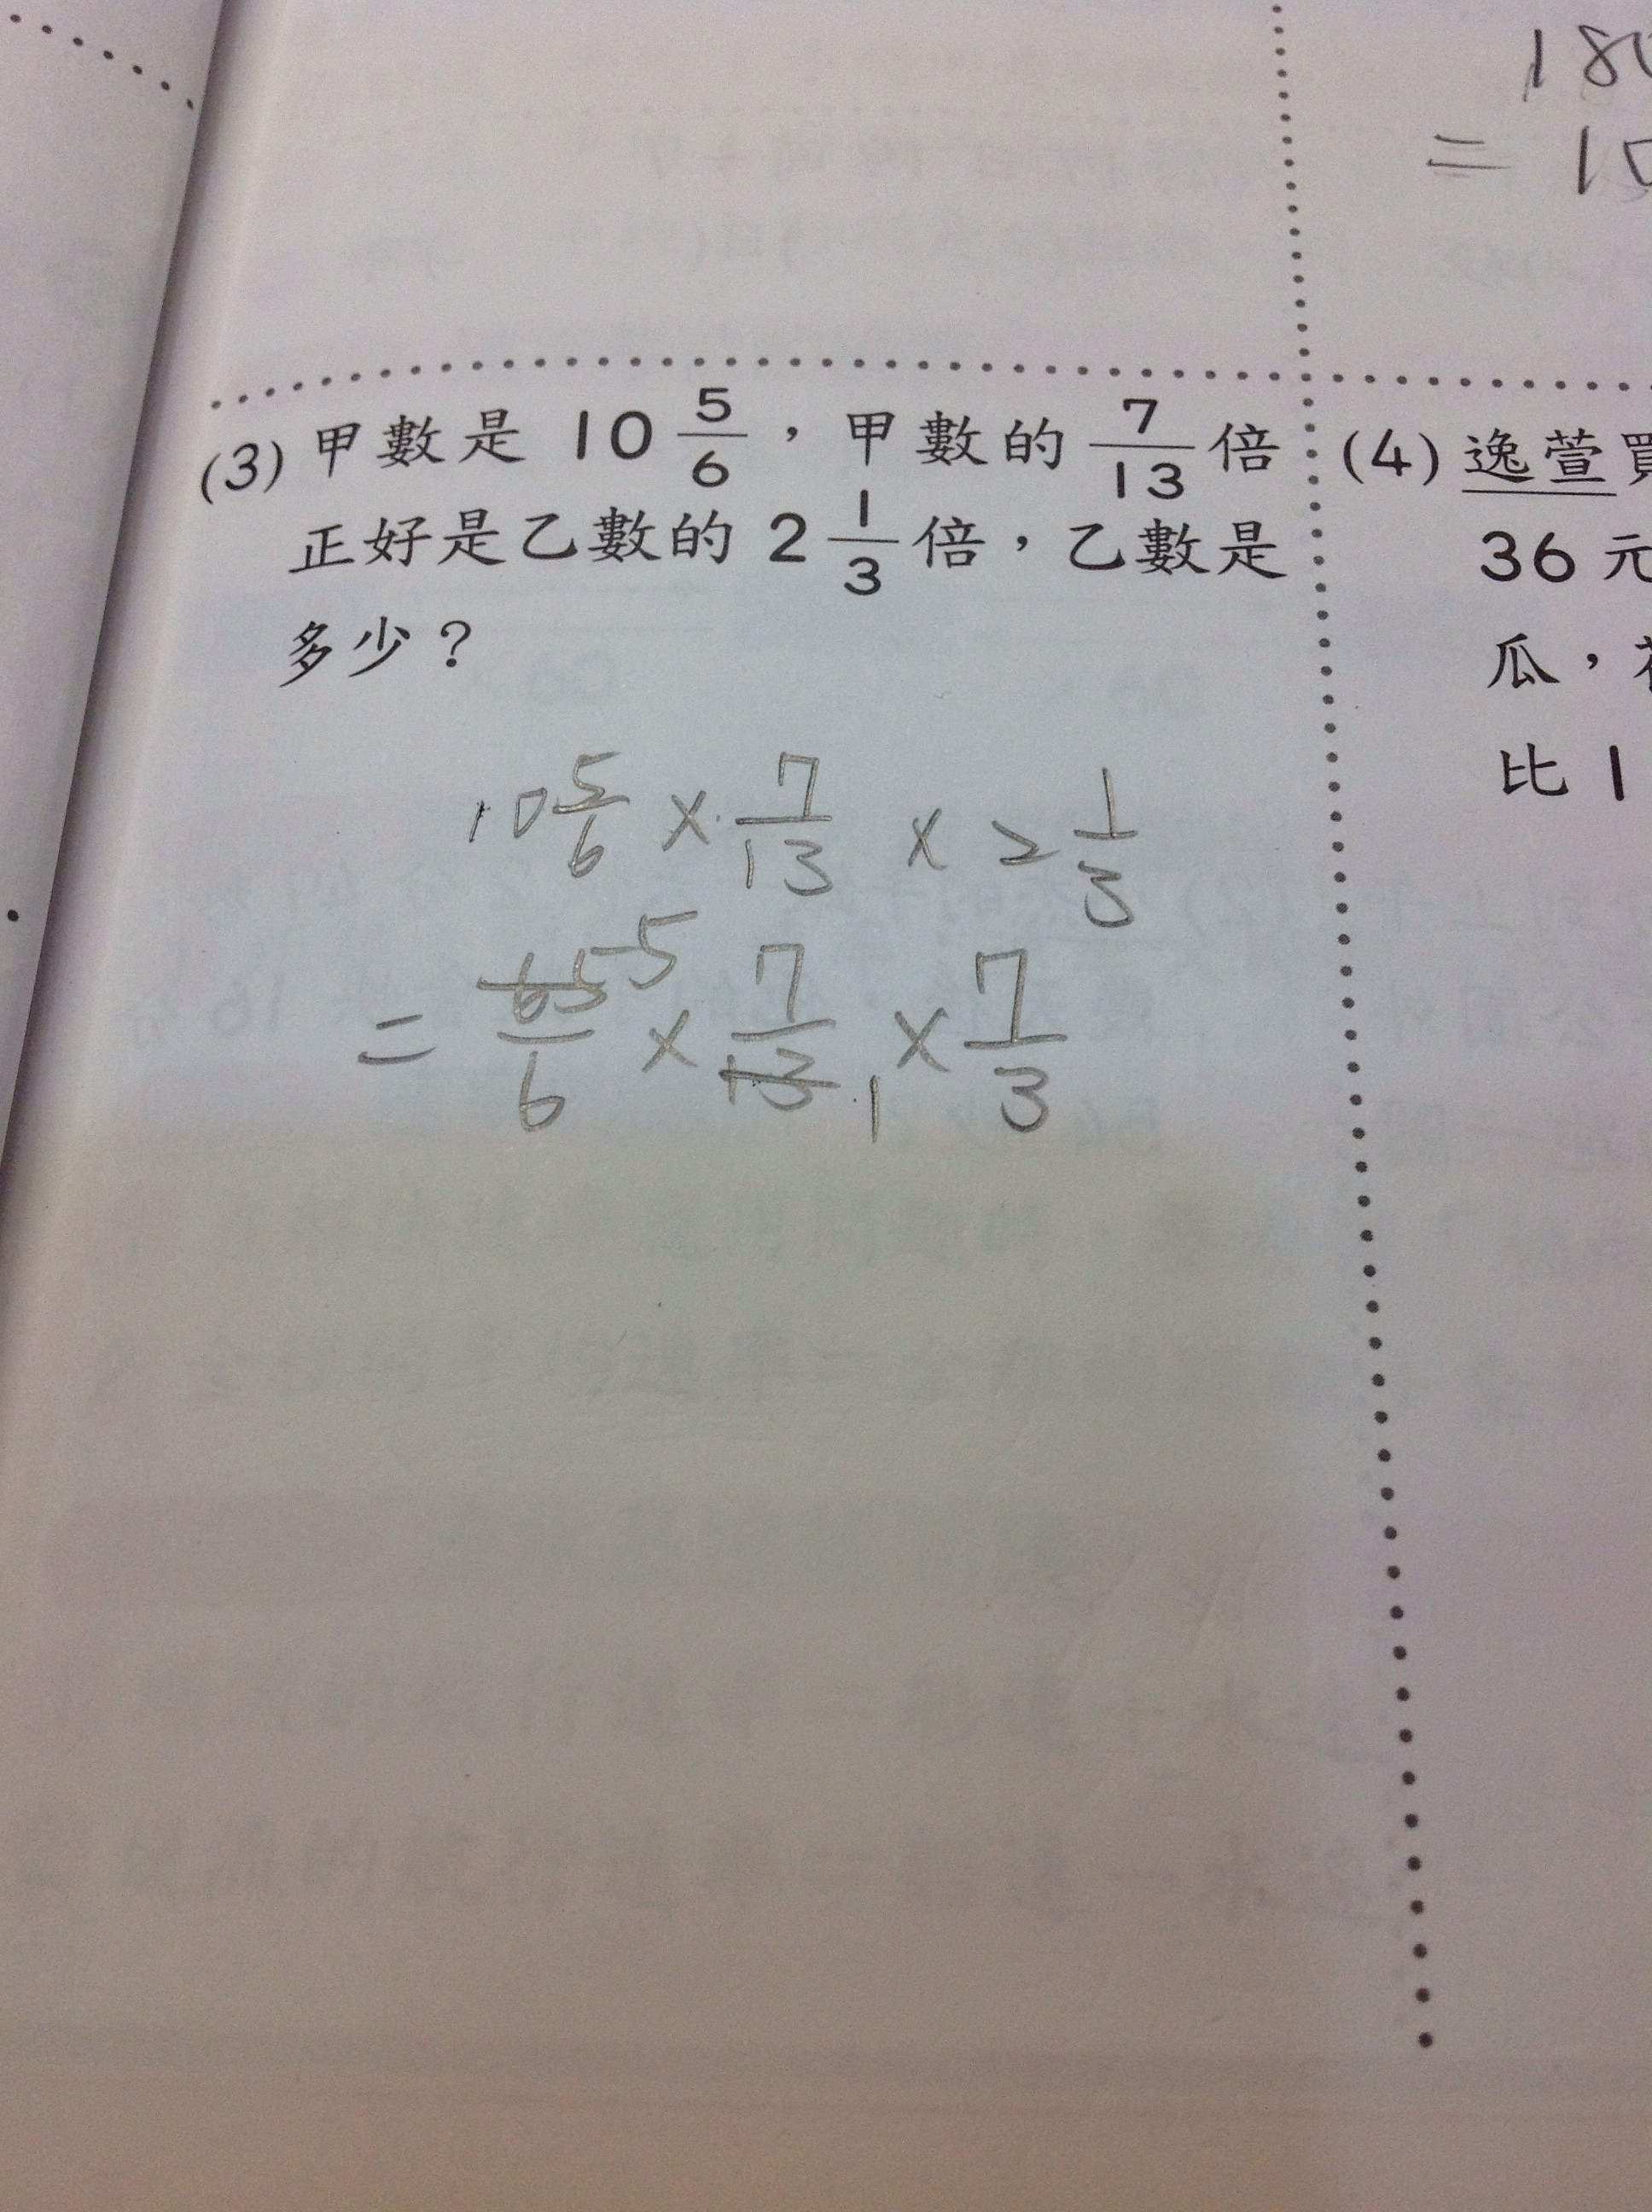 180
= 10
(3) 甲數是 10 5/6，甲數的 7/13 倍
正好是乙數的 2 1/3 倍，乙數是
多少？
10 5/6 × 7/13 × 2 1/3
= 65/6 5 × 7/13 1 × 7/3
(4) 逸萱買
36 元
瓜，
比 1